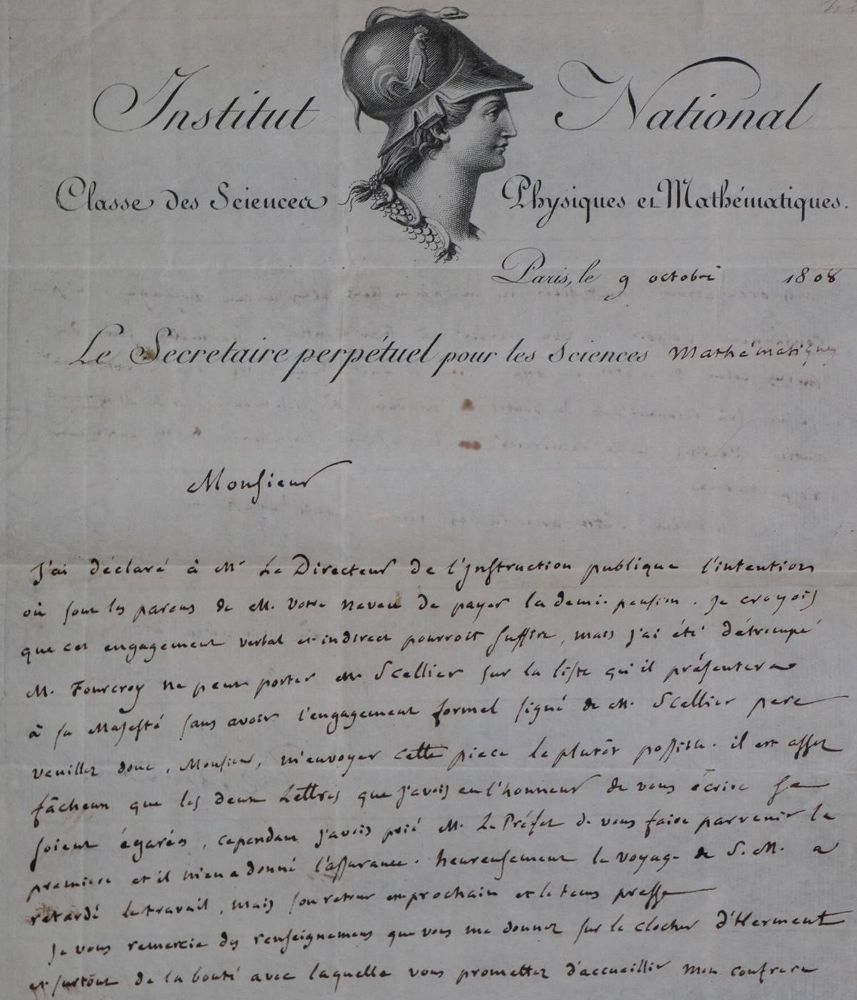 Institut National
Classe des Sciences Physiques et Mathématiques.
Paris, le 9 octobre 1808
Le Secretaire perpétuel pour les Sciences Mathématiques
Monsieur
J'ai déclaré à Mr Le Directeur de l'Instruction publique l'intention
où sont les parens de M. votre neveu de payer la demi-pension. Je croyois
que cet engagement verbal et indirect pourroit suffire, mais j'ai été détrompé
M. Fourcroy ne peut porter Mr Scellier sur la liste qu'il présentera
à sa Majesté sans avoir l'engagement formel signé de M. Scellier pere
veuillez donc, Monsieur, m'envoyer cette piece le plutôt possible. il est assez
fâcheux que les deux Lettres que j'avois eu l'honneur de vous écrire se
soient égarées, cependant j'avois prié M. Le Préfet de vous faire parvenir la
premiere et il m'en a donné l'assurance. heureusement le voyage de S. M. a
retardé le travail, mais son retour est prochain et le tems presse
Je vous remercie des renseignemens que vous me donnez sur le clocher d'Herment
et surtout de la bonté avec laquelle vous promettez d'accueillir mon confrere